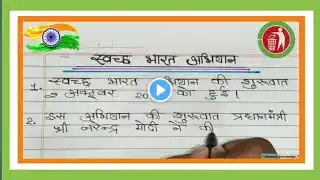 स्वच्छ भारत अभियान
1. स्वच्छ भारत अभियान की शुरुवात
2 अक्टूबर 20 को हुई।
2. इस अभियान की शुरुवात प्रधानमंत्री
श्री नरेन्द्र मोदी ने की